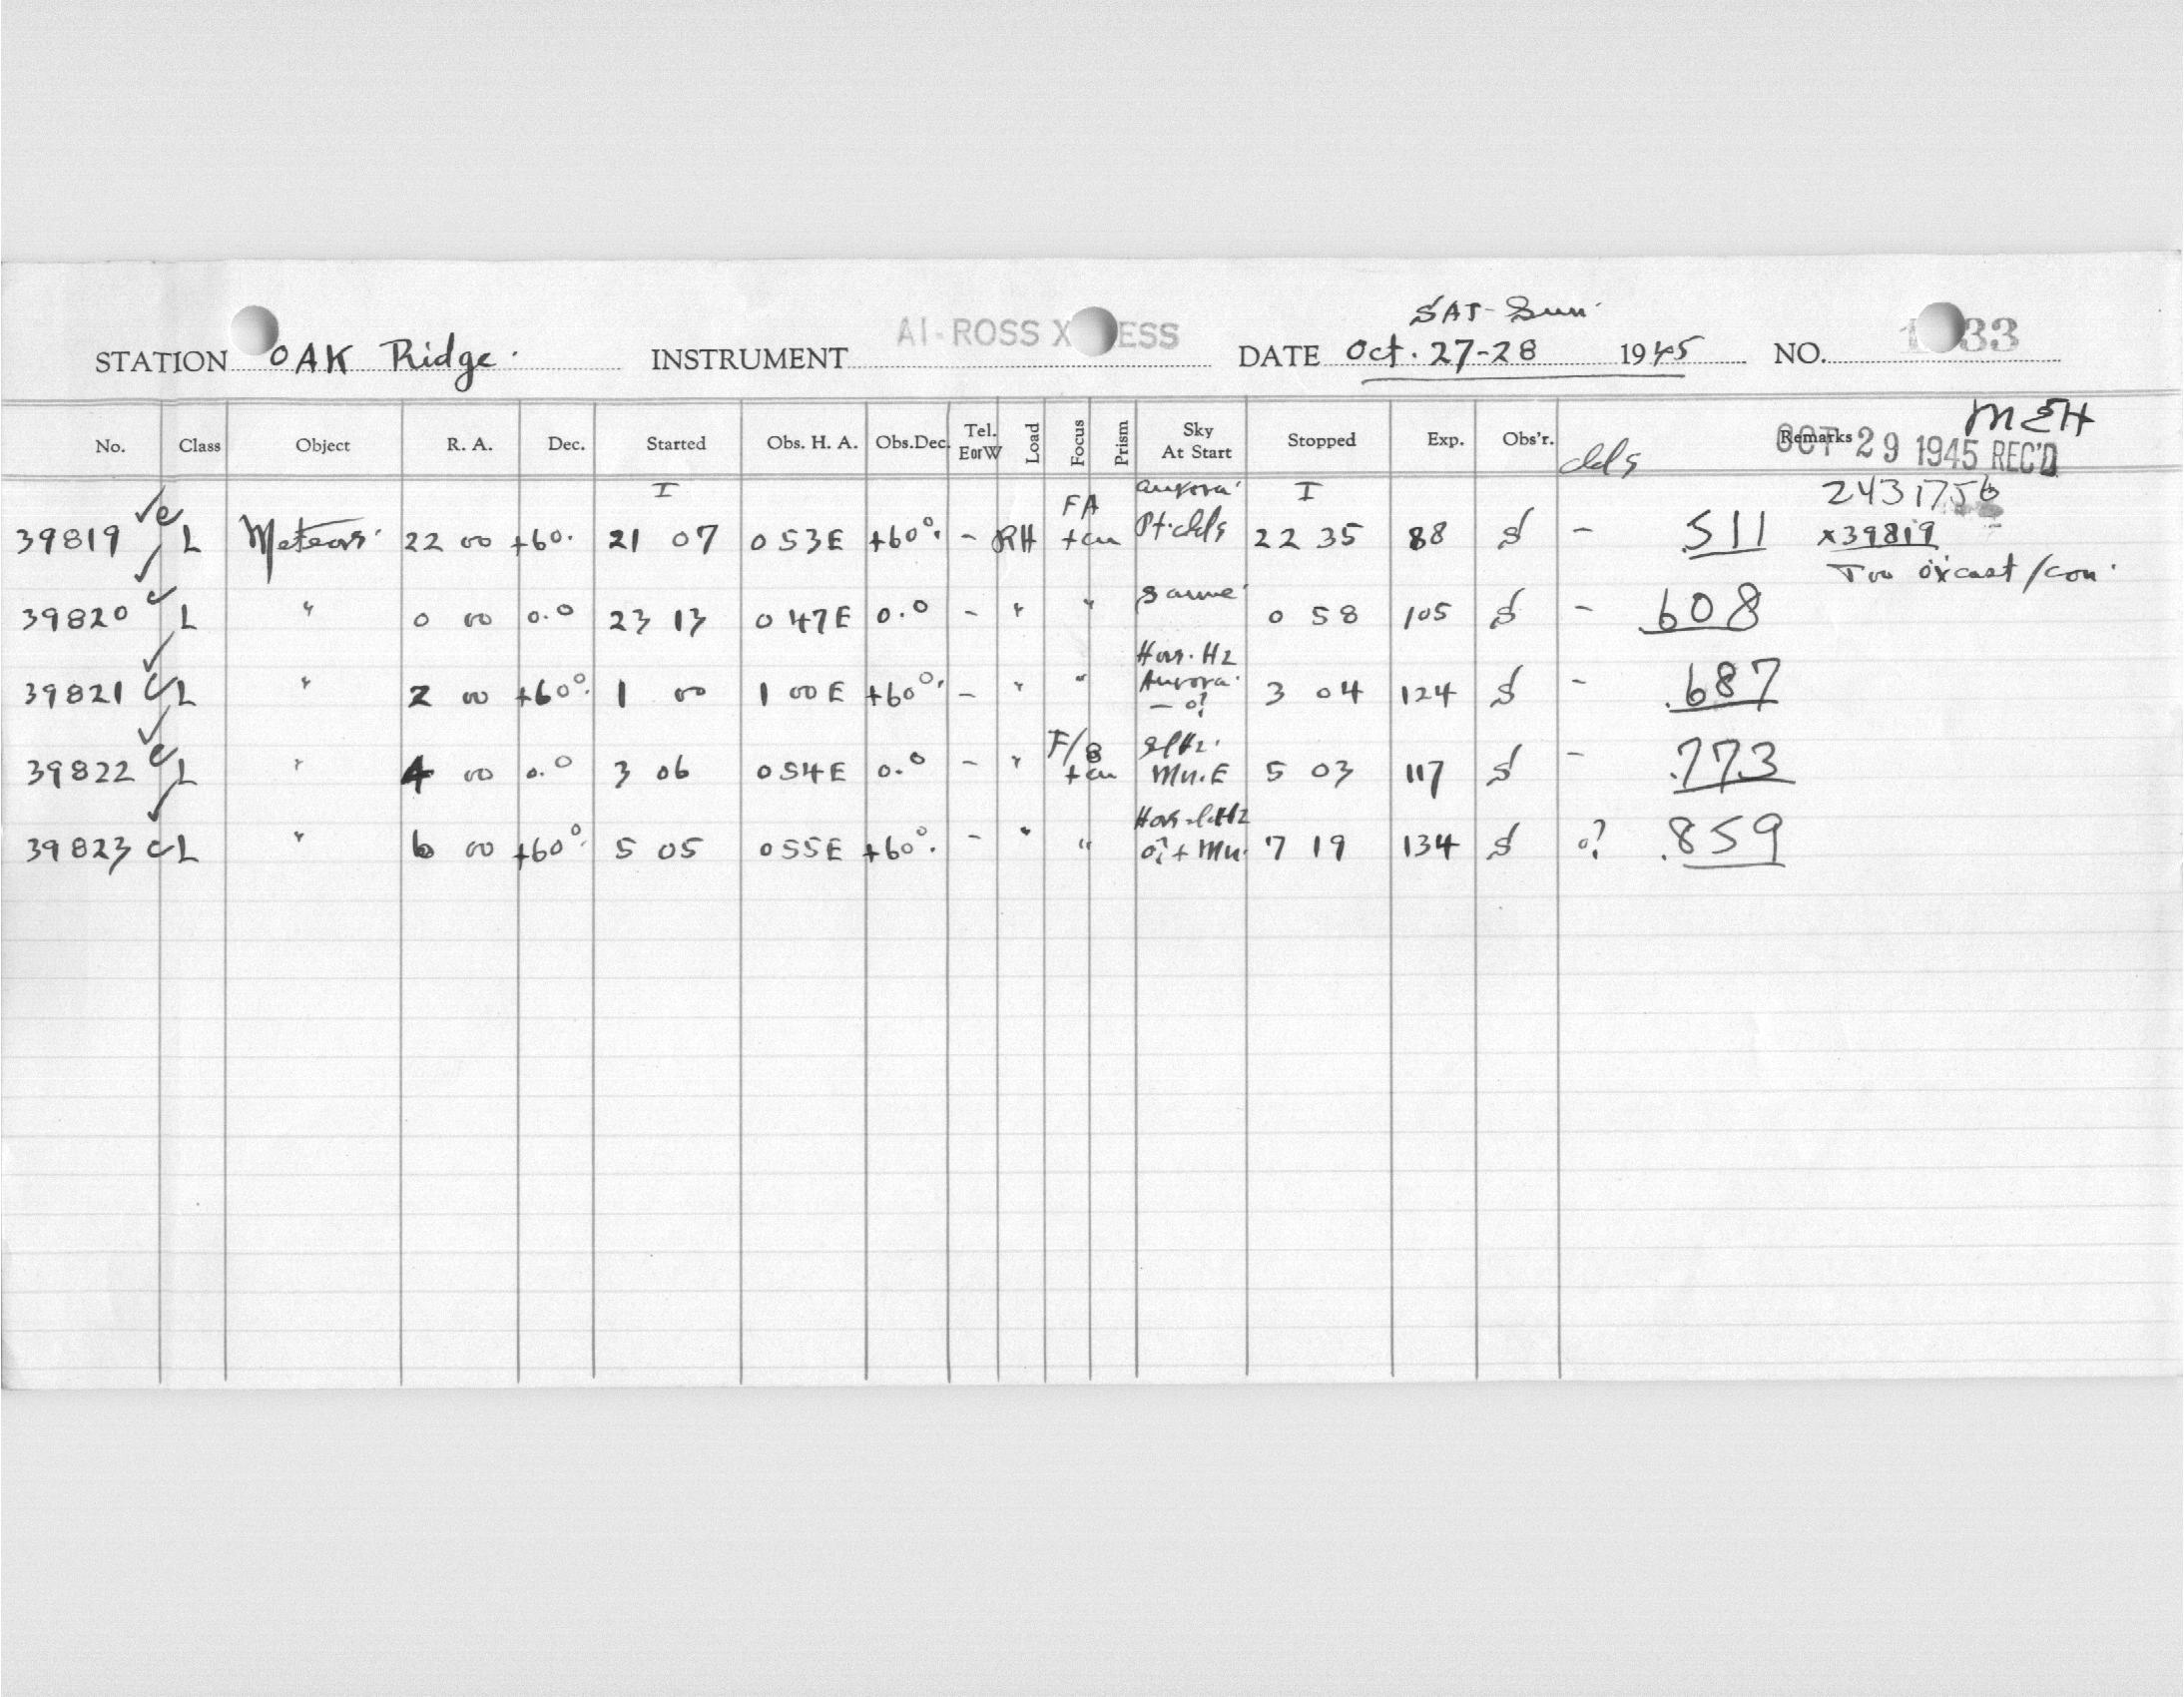 SAT-Sun.
STATION OAK Ridge. INSTRUMENT AI-ROSS X ESS DATE Oct. 27-28 1945 NO. 33
MEH
No. Class Object R. A. Dec. Started Obs. H. A. Obs.Dec. Tel. EorW Load Focus Prism Sky At Start Stopped Exp. Obs'r. clds Remarks
OCT 29 1945 REC'D
I FA aurora. I 2431756
39819 L Meteors. 22 00 +60. 21 07 0 53E +60°. - RH +cu Pt.clds 22 35 88 S - .511 x39819
Too o'xcast/con.
39820 L " 0 00 0.° 23 13 0 47E 0.° - " " same. 0 58 105 S - .608
Hor. Hz
39821 L " 2 00 +60°. 1 00 1 00E +60°. - " " Aurora. - o? 3 04 124 S - .687
39822 L " 4 00 0.° 3 06 0 54E 0.° - " F/8 +cu slHz. Mn.E 5 03 117 S - .773
39823 L " 6 00 +60°. 5 05 0 55E +60°. - " " o? + Mn. 7 19 134 S o? .859